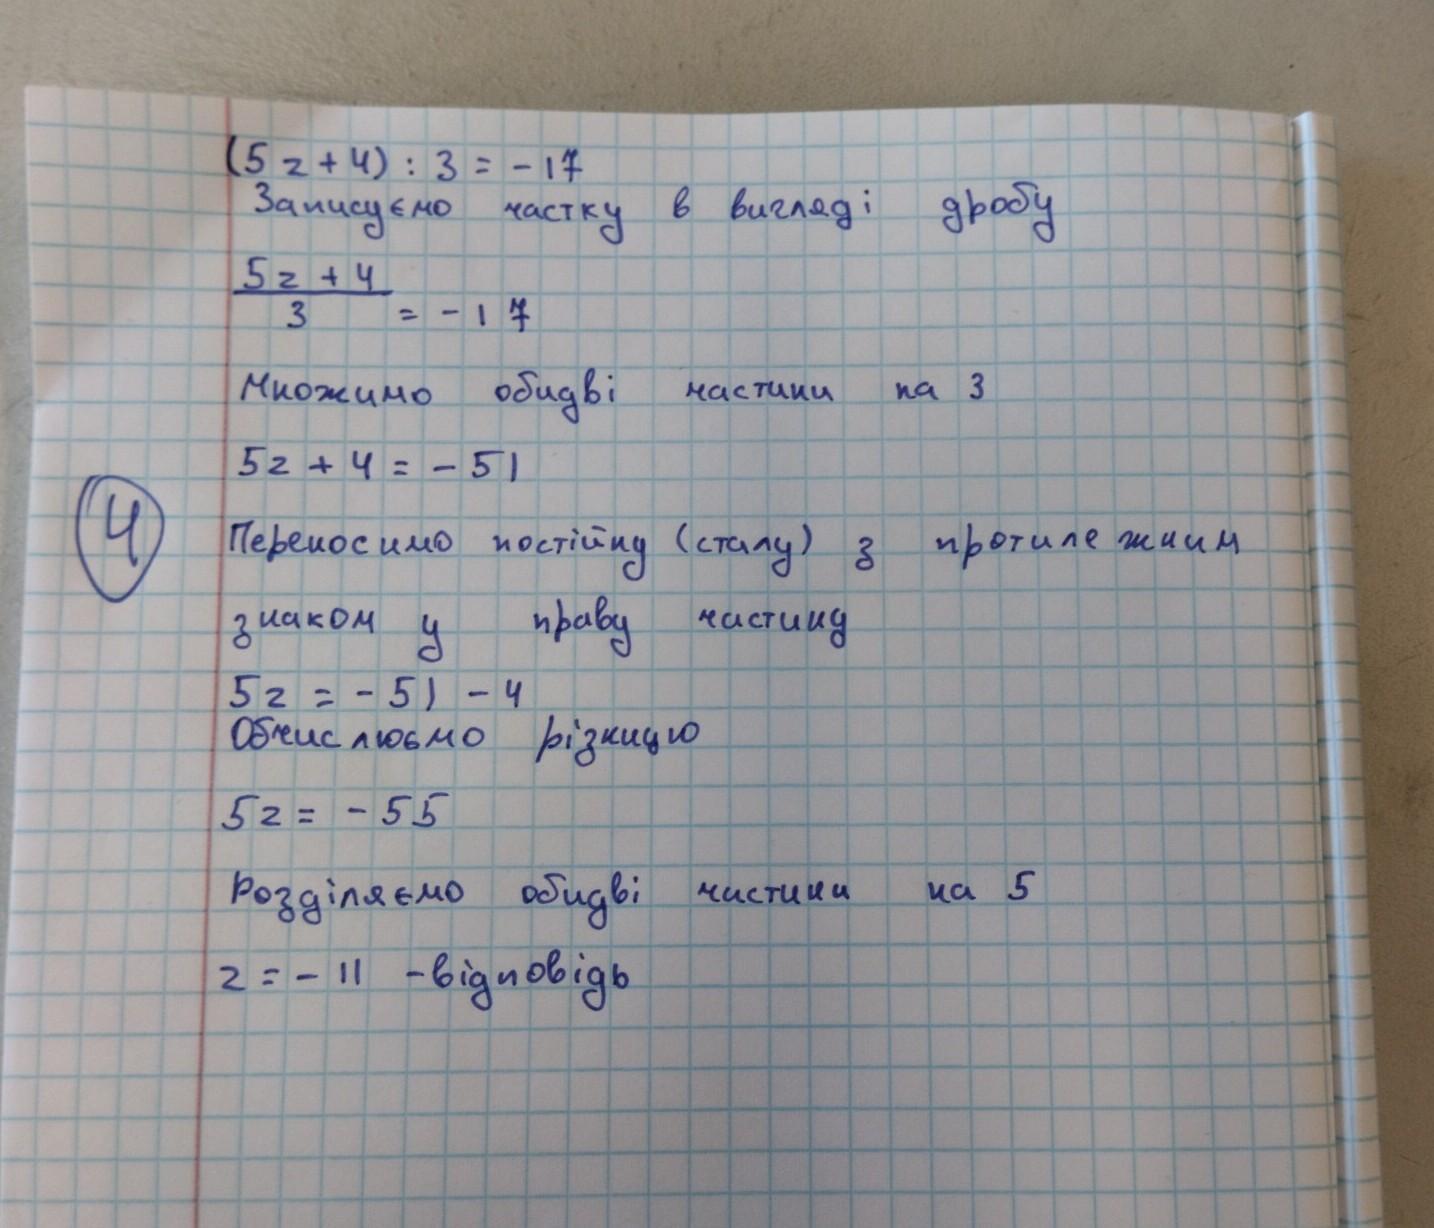 (5z+4) : 3 = -17
Записуємо частку в вигляді дробу
5z + 4
3 = - 17
Множимо обидві частини на 3
5z + 4 = - 51
4
Переносимо постійну (сталу) з протилежним
знаком у праву частину
5z = - 51 - 4
Обчислюємо різницю
5z = - 55
Розділяємо обидві частини на 5
z = - 11 - відповідь